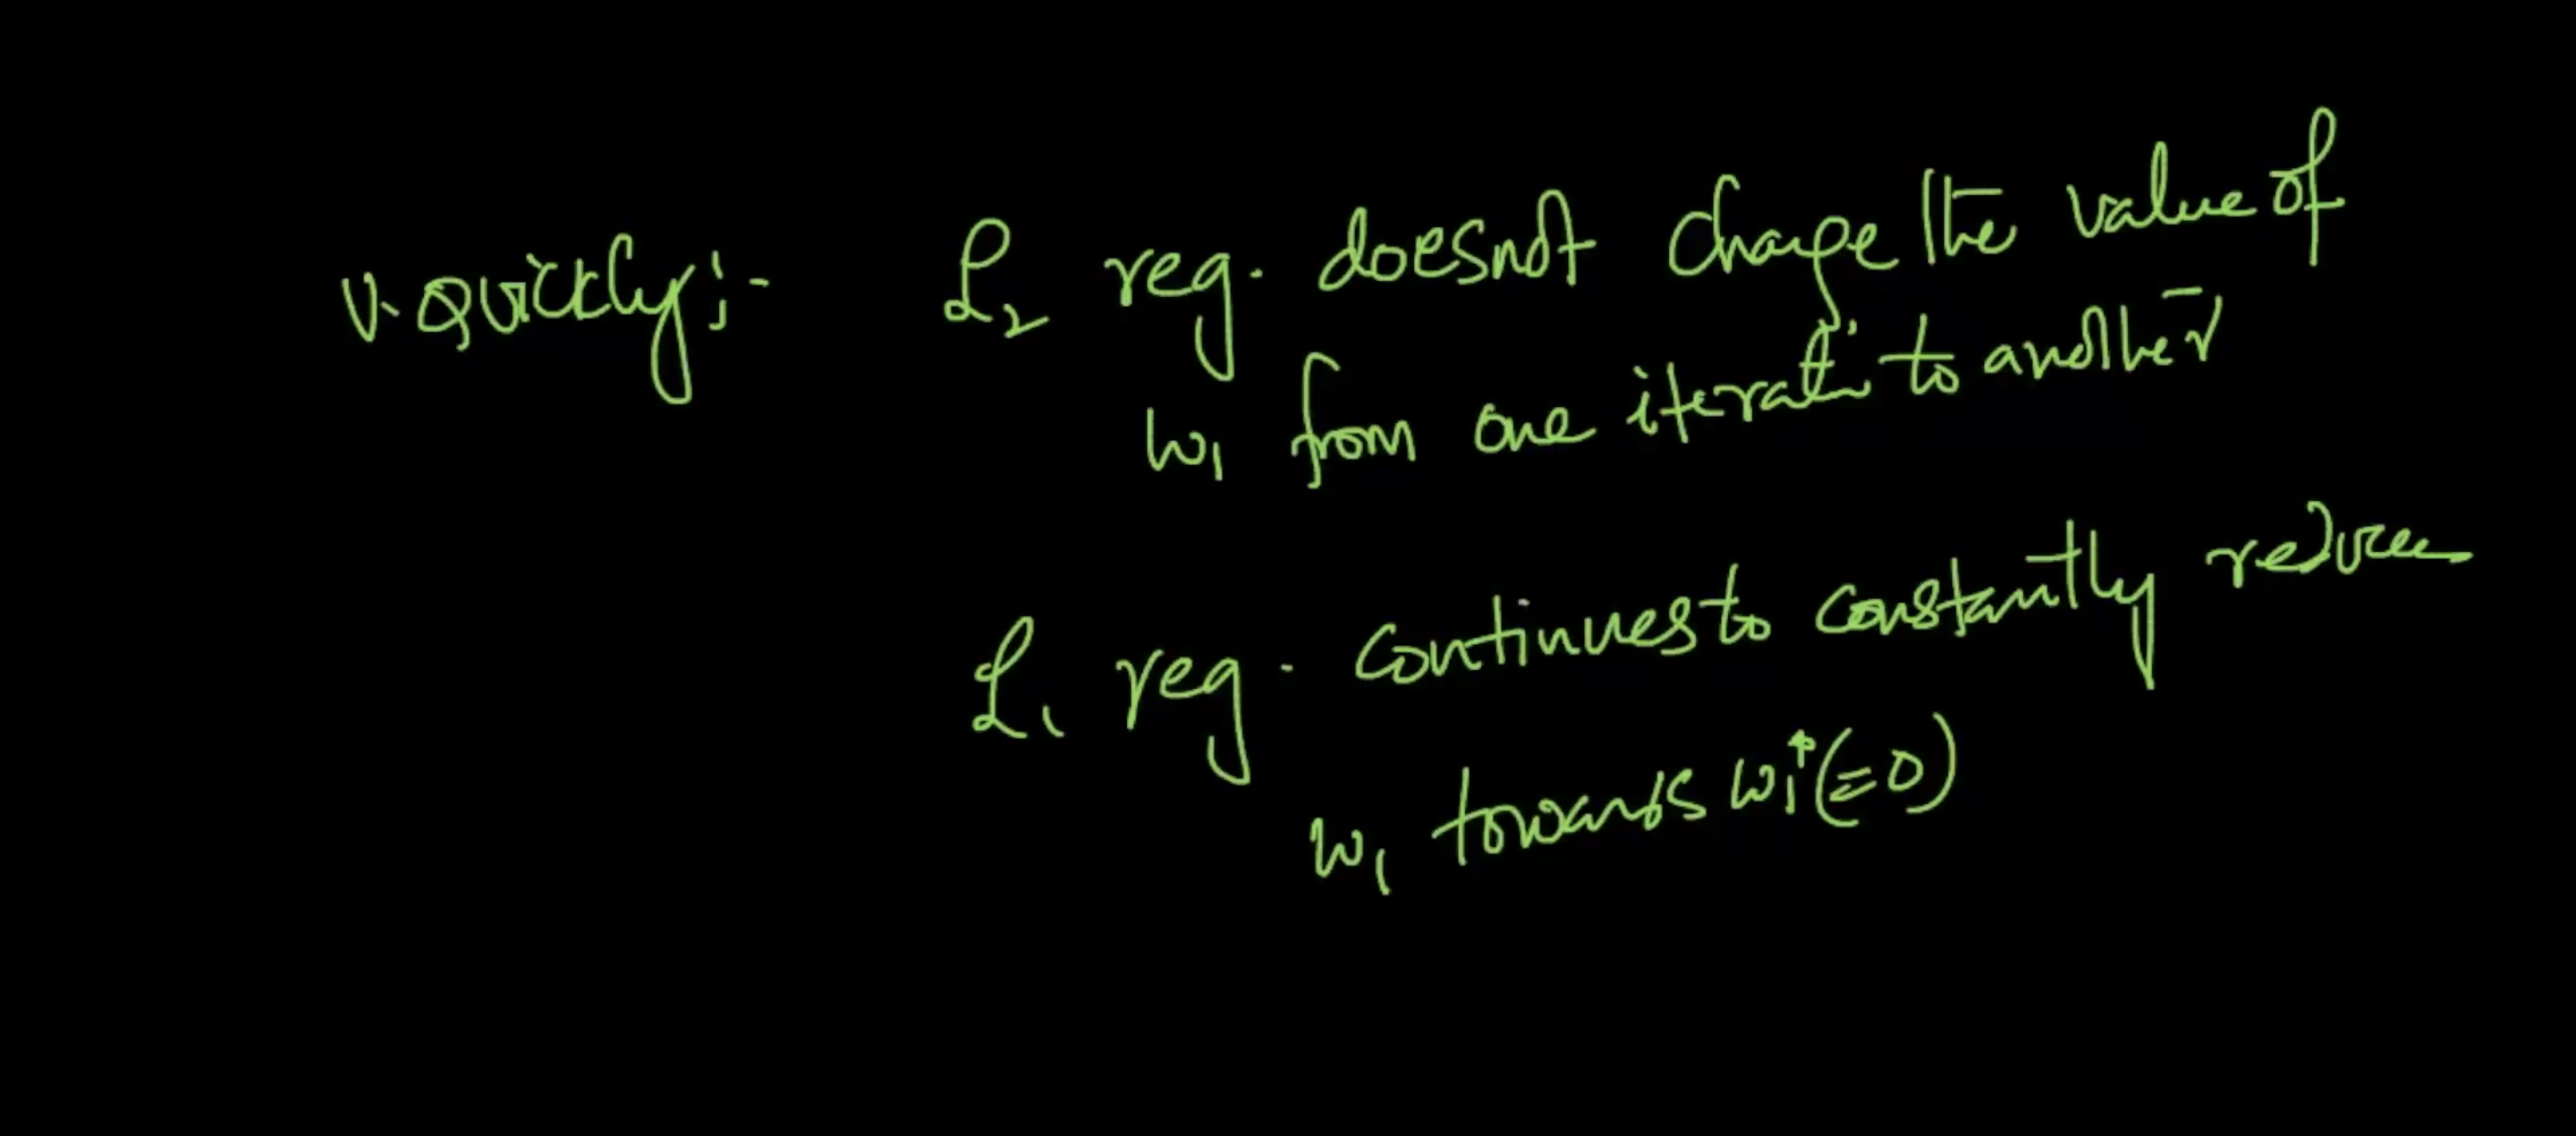 v. quickly:- L₂ reg. doesnot change the value of
w₁ from one iterati to another
L₁ reg. continues to constantly reduce
w₁ towards w₁*(=0)